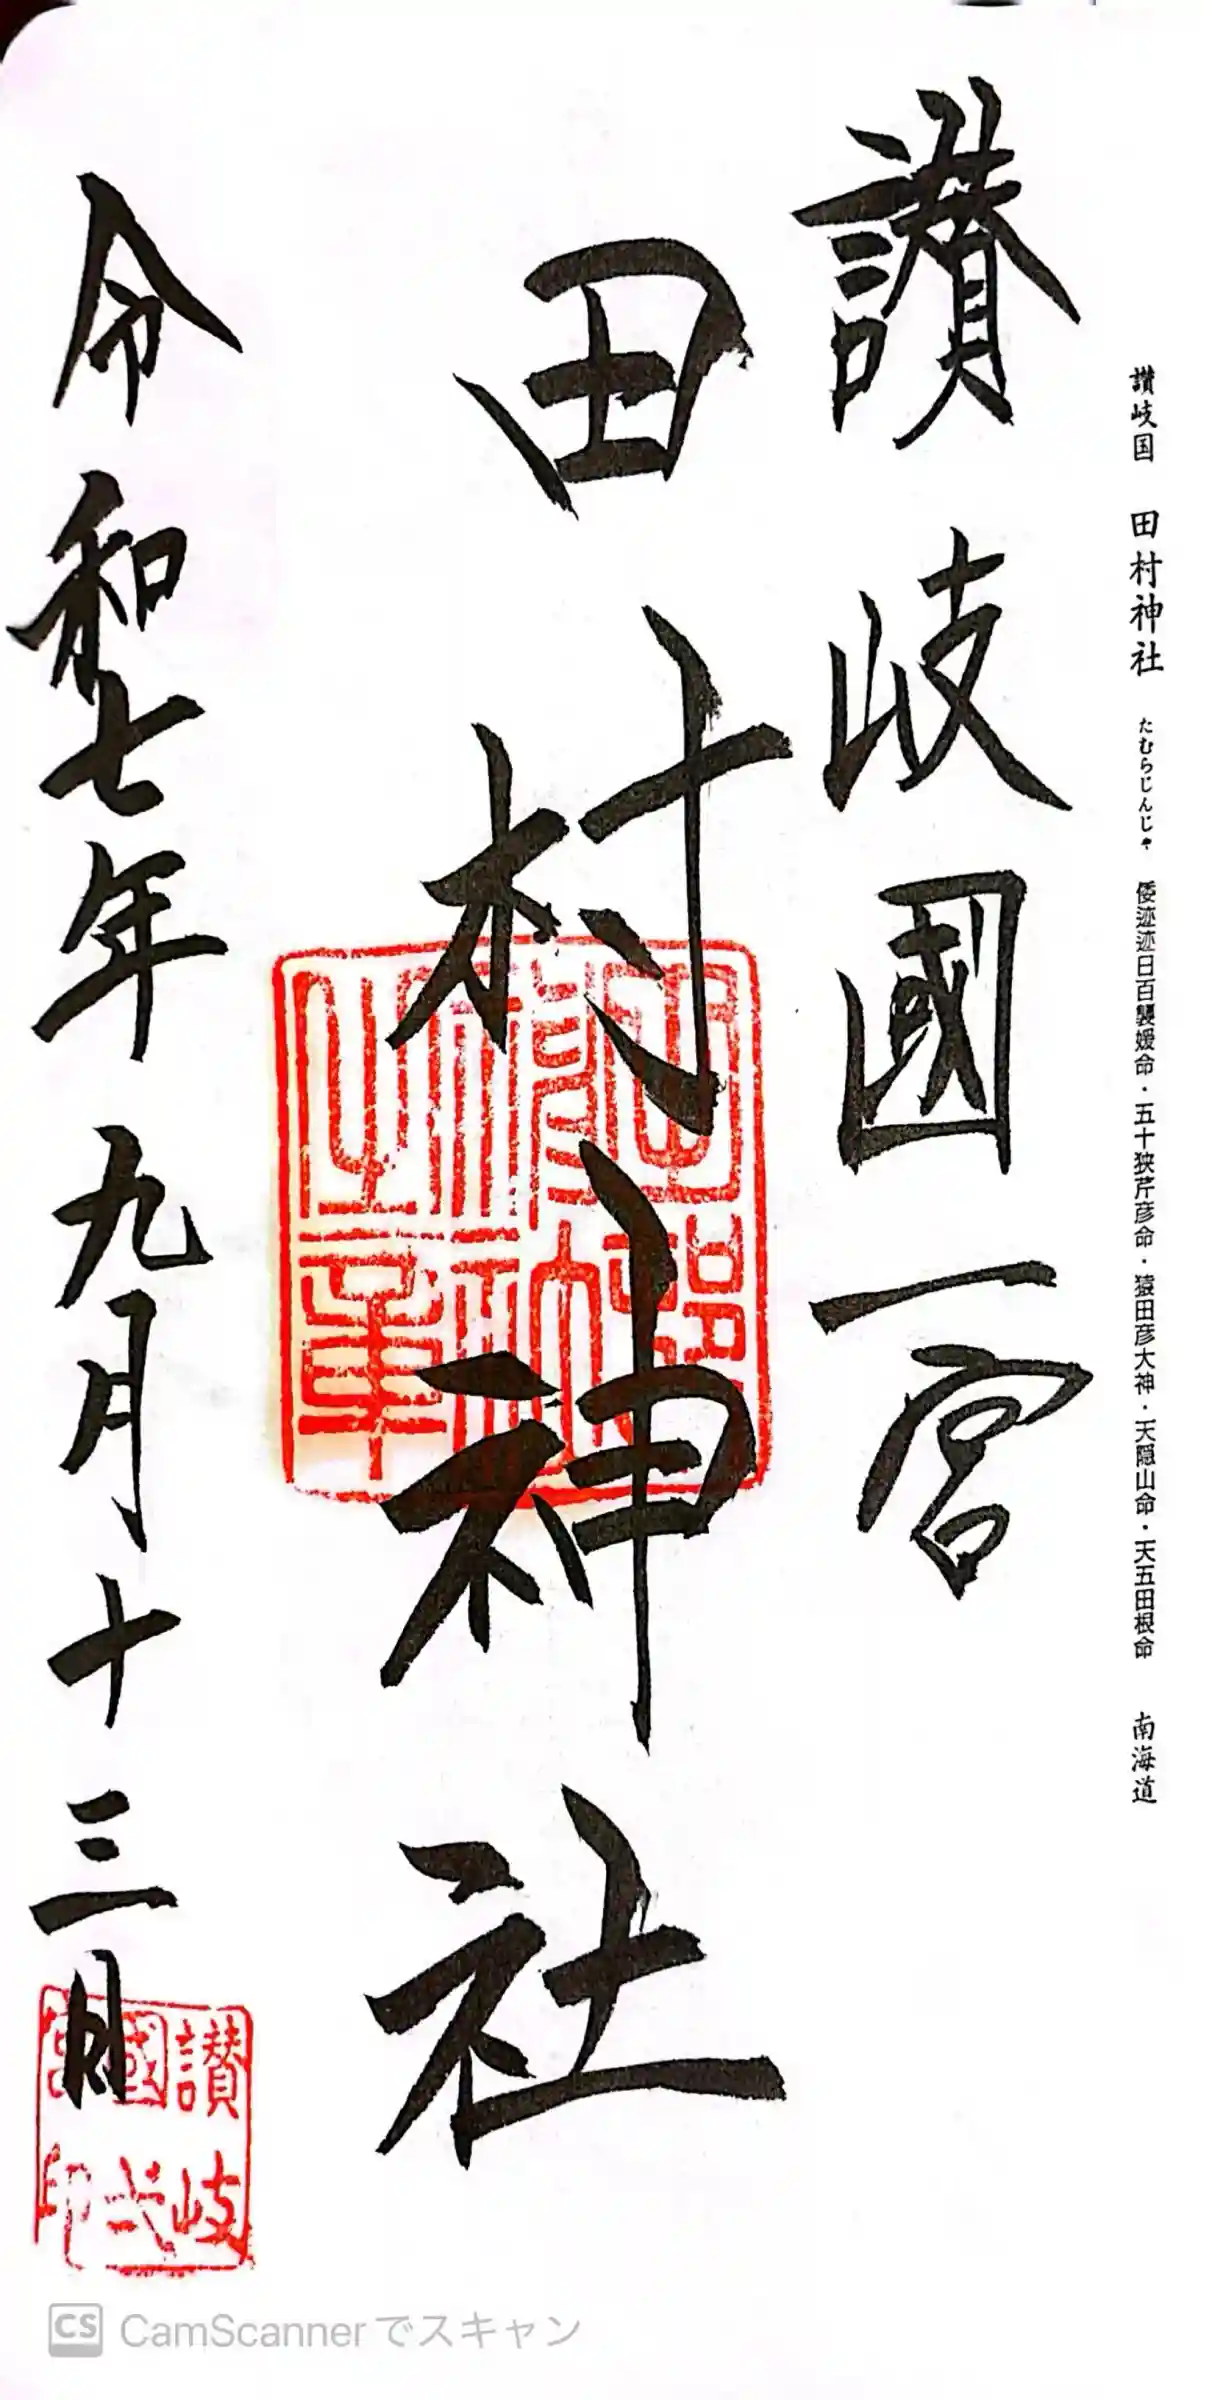 讃岐国 田村神社 たむらじんじゃ 倭迹迹日百襲媛命・五十狭芹彦命・猿田彦大神・天隠山命・天五田根命 南海道
讃岐國一宮
田村神社
令和七年九月十三日
讃岐
國弌
宮印
CS CamScannerでスキャン